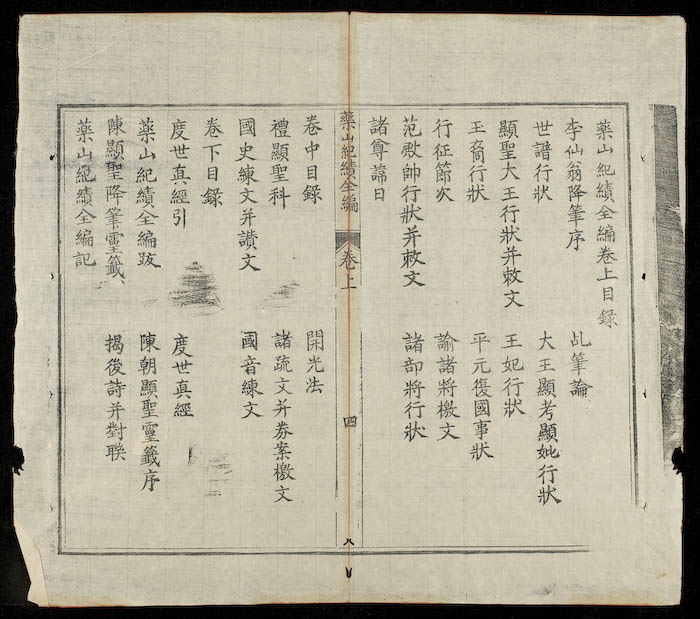 藥山紀績全編卷上目錄
李仙翁降筆序 乩筆論
世譜行狀 大王顯考顯妣行狀
顯聖大王行狀并敕文 王妃行狀
王裔行狀 平元復國事狀
行征節次 諭諸將檄文
范殿帥行狀并敕文 諸部將行狀
諸尊諱日
藥山紀績全編 卷上 四
卷中目錄 開光法
禮顯聖科 諸疏文并券案檄文
國史練文并讚文 國音練文
卷下目錄
度世真經引 度世真經
藥山紀績全編跋 陳朝顯聖靈籤序
陳顯聖降筆靈籤、 揭後詩并對聯
藥山紀績全編記